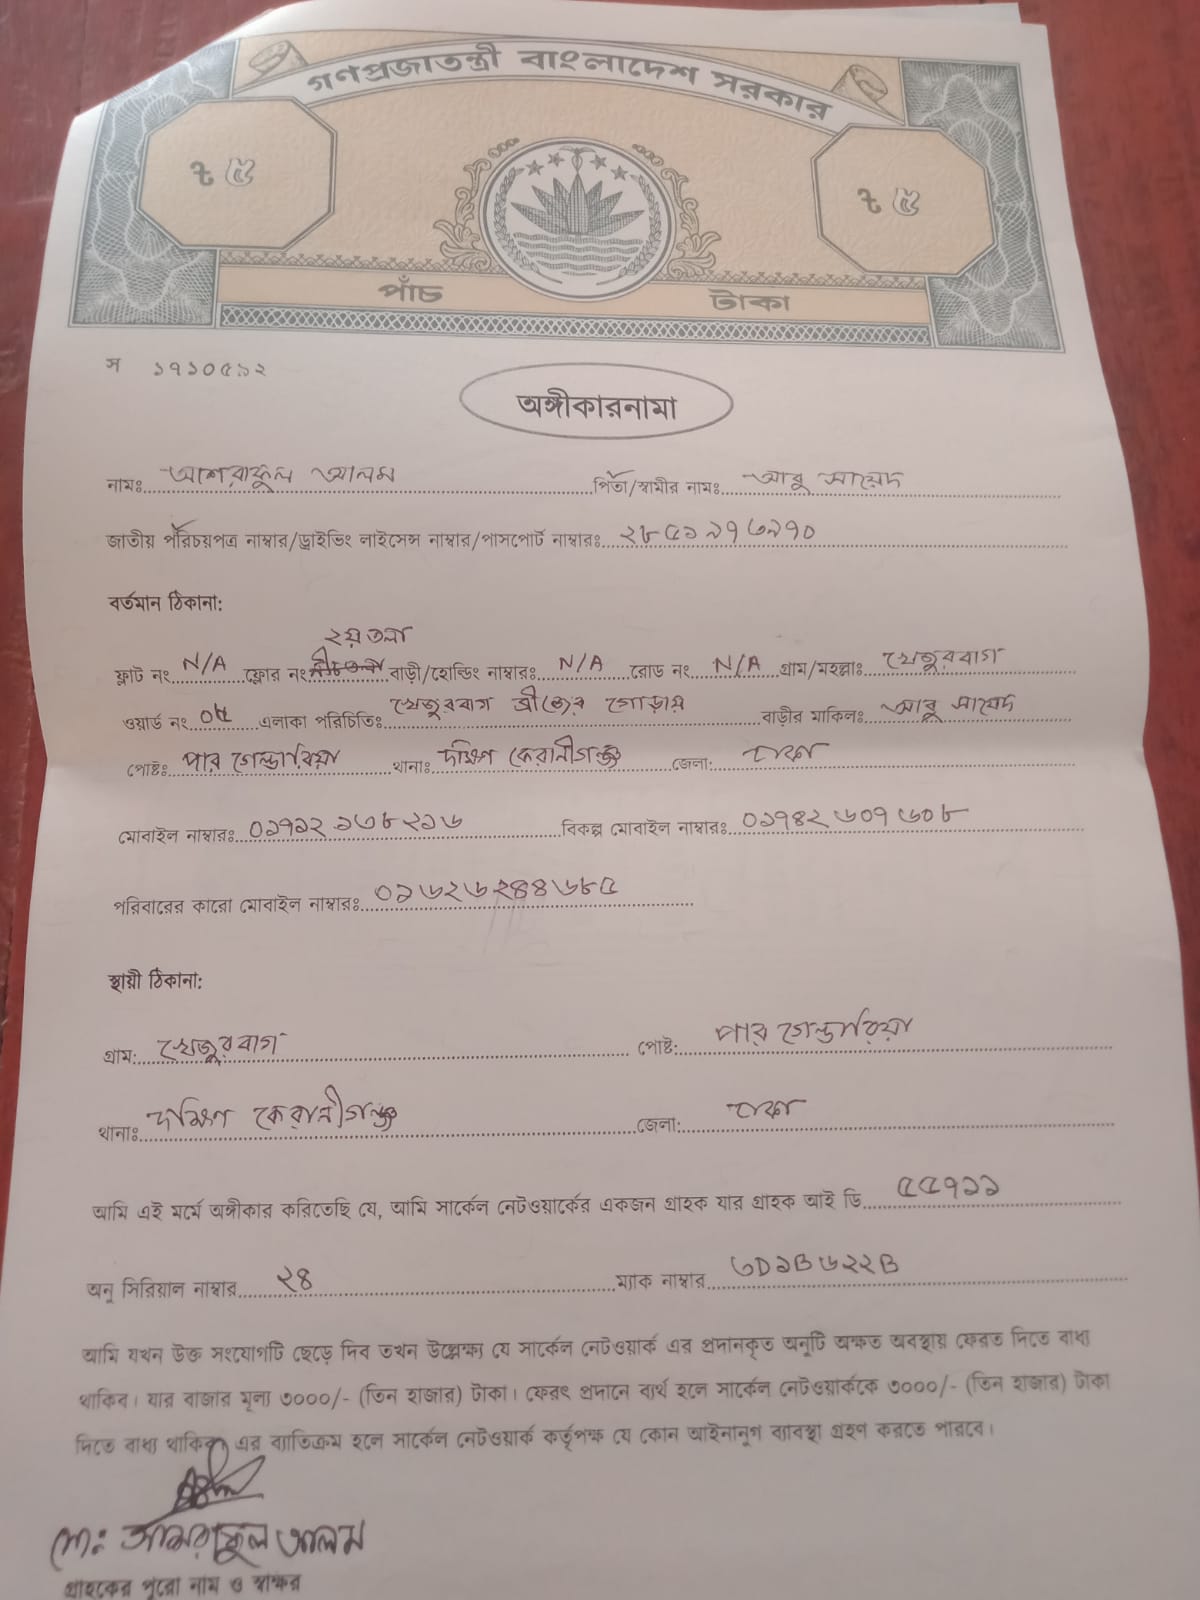 গণপ্রজাতন্ত্রী বাংলাদেশ সরকার
ট ৫ ট ৫
পাঁচ টাকা
স ১৭১০৫১২
অঙ্গীকারনামা
নামঃ আশরাফুল আলম পিতা/স্বামীর নামঃ আবু সায়েদ
জাতীয় পরিচয়পত্র নাম্বার/ড্রাইভিং লাইসেন্স নাম্বার/পাসপোর্ট নাম্বারঃ ২৮৫১৯৭৬৯৭০
বর্তমান ঠিকানা:
২য় তলা
ফ্লাট নং N/A ফ্লোর নং বাড়ী/হোল্ডিং নাম্বারঃ N/A রোড নং N/A গ্রাম/মহল্লাঃ খেজুরবাগ
ওয়ার্ড নং ০৫ এলাকা পরিচিতিঃ খেজুরবাগ ব্রীজের গোড়ায় বাড়ীর মালিকঃ আবু সায়েদ
পোষ্টঃ পার গেন্ডারিয়া থানাঃ দক্ষিণ কেরানীগঞ্জ জেলা: ঢাকা
মোবাইল নাম্বারঃ ০১৭১২১৬৮২১৬ বিকল্প মোবাইল নাম্বারঃ ০১৭৪২৬০৭৬০৮
পরিবারের কারো মোবাইল নাম্বারঃ ০১৬২৬২৪৪৬৮৫
স্থায়ী ঠিকানা:
গ্রাম: খেজুরবাগ পোষ্ট: পার গেন্ডারিয়া
থানাঃ দক্ষিণ কেরানীগঞ্জ জেলা: ঢাকা
আমি এই মর্মে অঙ্গীকার করিতেছি যে, আমি সার্কেল নেটওয়ার্কের একজন গ্রাহক যার গ্রাহক আই ডি ৫৫৭১১
অনু সিরিয়াল নাম্বার ২৪ ম্যাক নাম্বার ৬D১B৬২২B
আমি যখন উক্ত সংযোগটি ছেড়ে দিব তখন উল্লেক্ষ্য যে সার্কেল নেটওয়ার্ক এর প্রদানকৃত অনুটি অক্ষত অবস্থায় ফেরত দিতে বাধ্য
থাকিব। যার বাজার মূল্য ৩০০০/- (তিন হাজার) টাকা। ফেরৎ প্রদানে ব্যর্থ হলে সার্কেল নেটওয়ার্ককে ৩০০০/- (তিন হাজার) টাকা
দিতে বাধ্য থাকিব। এর ব্যাতিক্রম হলে সার্কেল নেটওয়ার্ক কর্তৃপক্ষ যে কোন আইনানুগ ব্যাবস্থা গ্রহণ করতে পারবে।
মো: আশরাফুল আলম
গ্রাহকের পুরো নাম ও স্বাক্ষর